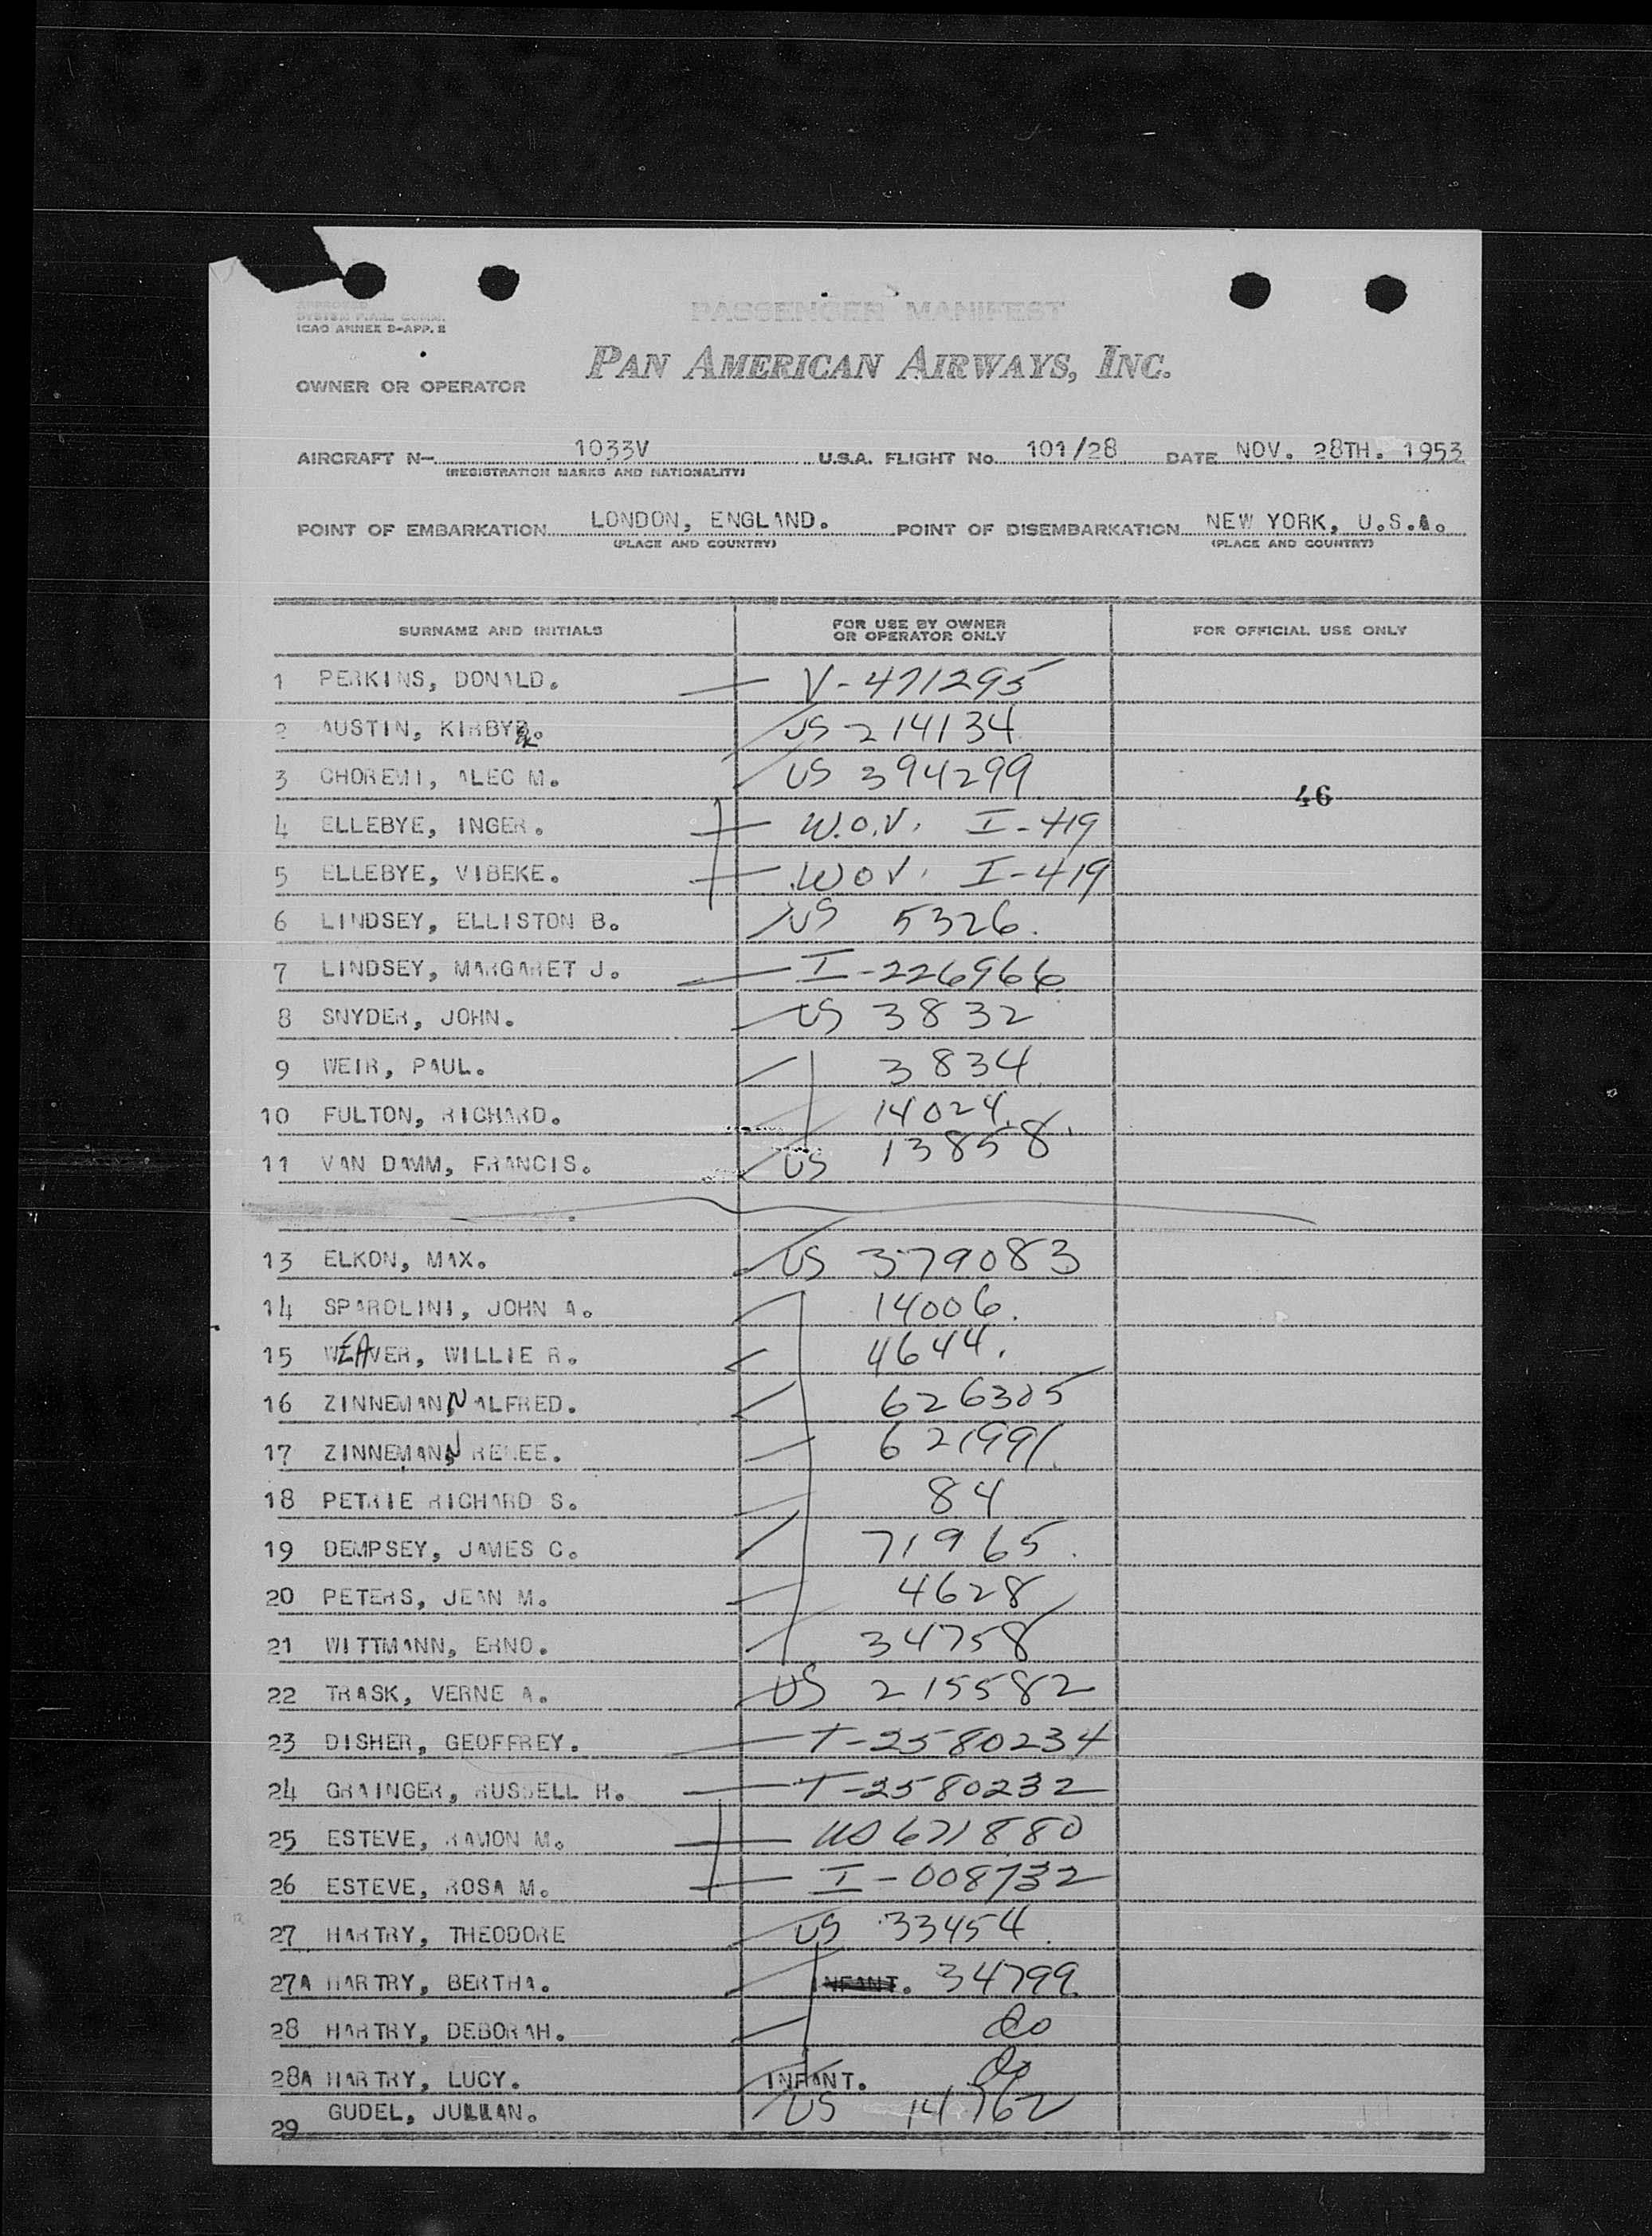 APPROVED
SYSTEM F.A.L. COMM.
ICAO ANNEX 9-APP. 2
PASSENGER MANIFEST
PAN AMERICAN AIRWAYS, INC.
OWNER OR OPERATOR
AIRCRAFT N- 1033V U.S.A. FLIGHT NO. 101/28 DATE NOV. 28TH. 1953
(REGISTRATION MARKS AND NATIONALITY)
POINT OF EMBARKATION LONDON, ENGLAND. POINT OF DISEMBARKATION NEW YORK, U.S.A.
(PLACE AND COUNTRY) (PLACE AND COUNTRY)
SURNAME AND INITIALS FOR USE BY OWNER OR OPERATOR ONLY FOR OFFICIAL USE ONLY
1 PERKINS, DONALD. V-471295
2 AUSTIN, KIRBY US 214134
3 CHOREMI, ALEC M. US 394299
46
4 ELLEBYE, INGER. W.O.V. I-419
5 ELLEBYE, VIBEKE. WOV. I-419
6 LINDSEY, ELLISTON B. US 5326.
7 LINDSEY, MARGARET J. I-226966
8 SNYDER, JOHN. US 3832
9 WEIR, PAUL. 3834
10 FULTON, RICHARD. 14024.
11 VAN DAMM, FRANCIS. US 13858
13 ELKON, MAX. US 379083
14 SPAROLINI, JOHN A. 14006.
15 WEAVER, WILLIE R. 4644.
16 ZINNEMANN ALFRED. 626305
17 ZINNEMANN RENEE. 621991
18 PETRIE RICHARD S. 84
19 DEMPSEY, JAMES C. 71965.
20 PETERS, JEAN M. 4628
21 WITTMANN, ERNO. 34758
22 TRASK, VERNE A. US 215582
23 DISHER, GEOFFREY. T-2580234
24 GRAINGER, RUSSELL H. T-2580232
25 ESTEVE, RAMON M. US 671880
26 ESTEVE, ROSA M. I-008732
27 HARTRY, THEODORE US 33454
27A HARTRY, BERTHA. INFANT. 34799
28 HARTRY, DEBORAH. do
28A HARTRY, LUCY. INFANT. do
29 GUDEL, JULLAN. US 14762